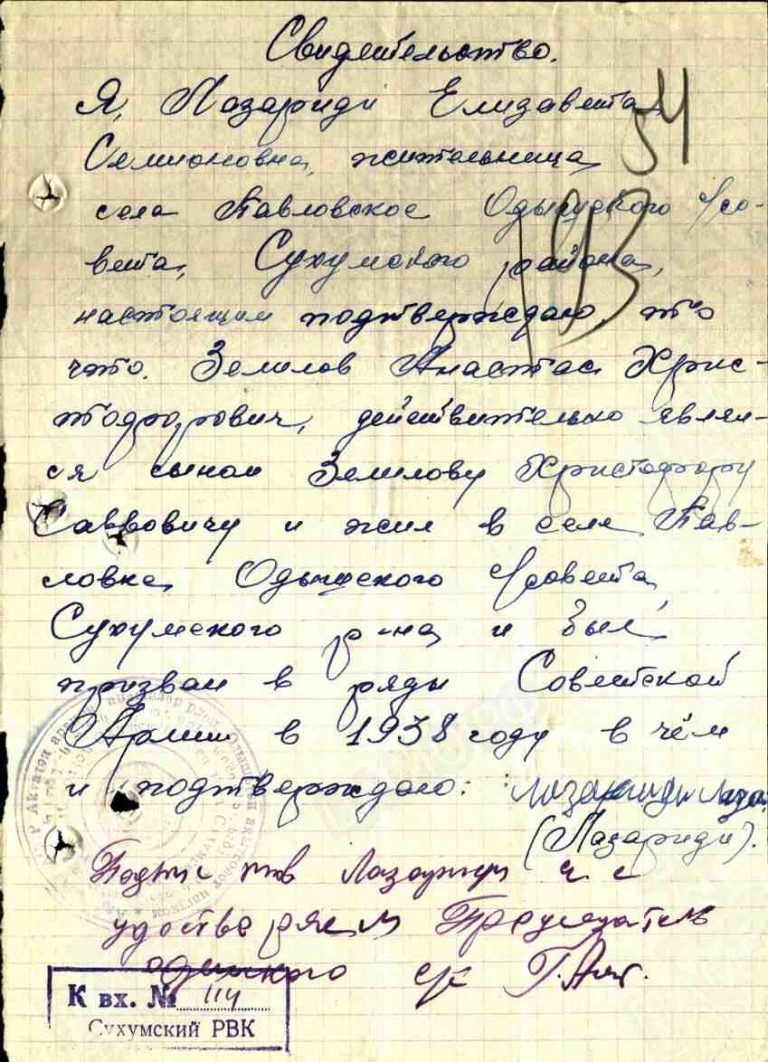 Свидетельство.
Я, Лазариди Елизавета
54
Семионовна, жительница
села Павловское Одышского с/со-
193
вета, Сухумского района,
настоящим подтверждаю, то
что. Землов Анастас Хрис-
тофорович, действительно являл-
ся сыном Землову Христофору
Саввовичу и жил в селе Пав-
ловка, Одышского с/совета
Сухумского р-на и был
призван в ряды Советской
Армии в 1938 году в чём
и подтверждаю: Лазариди
(Лазариди).
Подпис тов Лазариди
удостверяем Председатель
Одишского с/с
К вх. № 114
Сухумский РВК